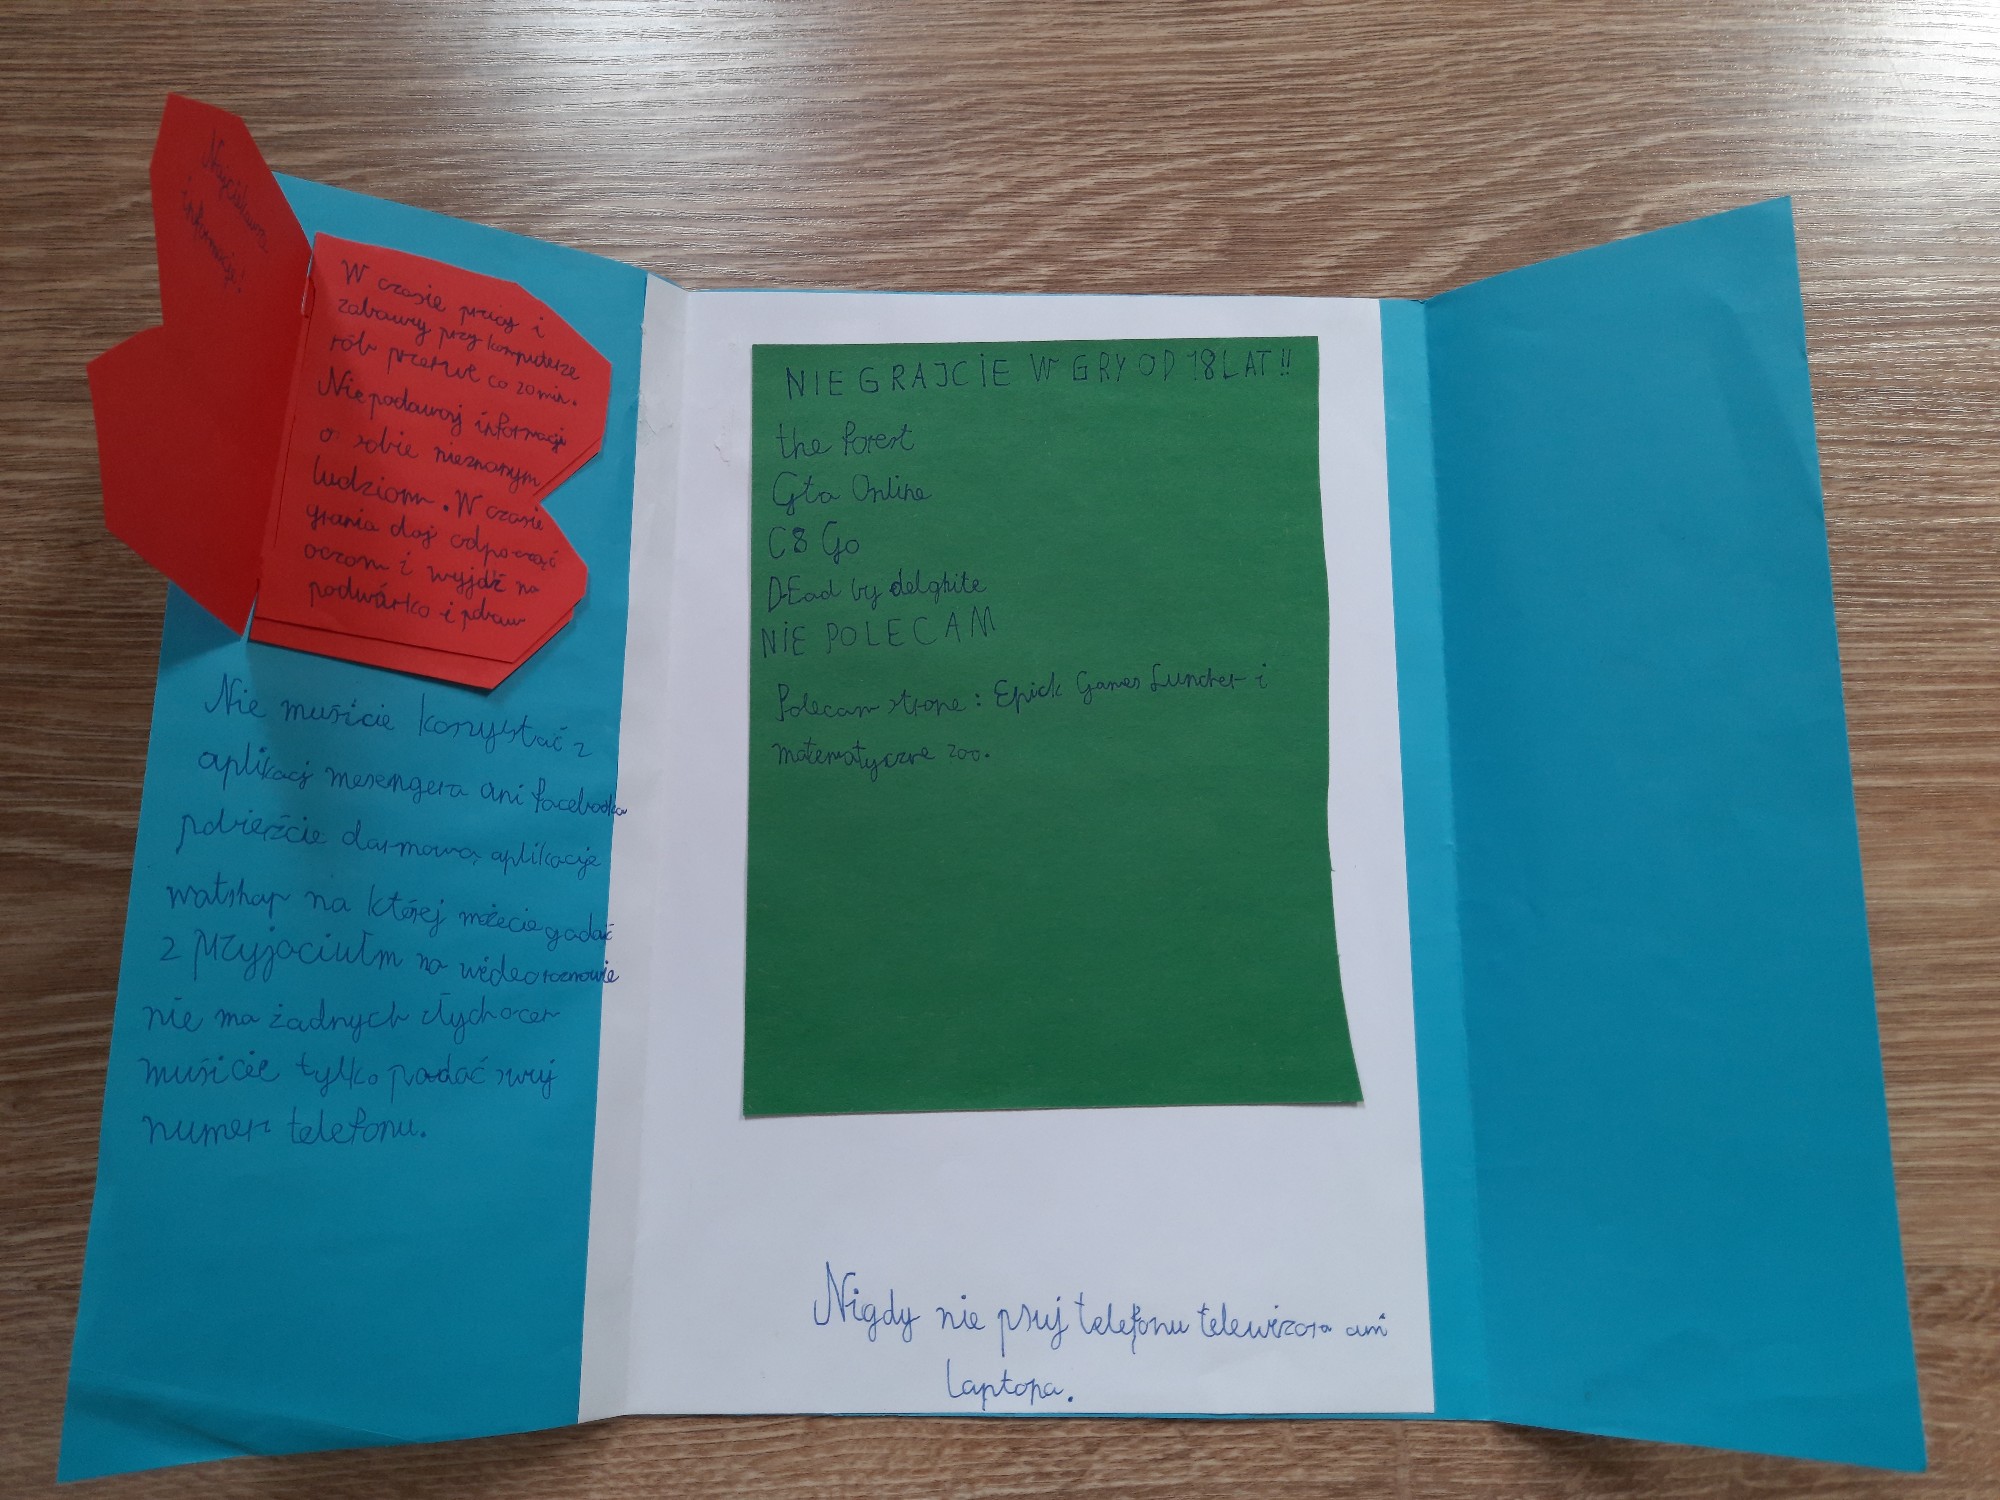 Najciekawsze
informacje!
W czasie pracy i
zabawy przy komputerze
rób przerwe co 20 min.
Nie podawaj informacji
o sobie nieznanym
ludziom. W czasie
grania daj odpocząć
oczom i wyjdź na
podwórko i pobaw
Nie musicie konystać z
aplikacj mesengera ani facebooka
pobierzcie darmową aplikacje
watshap na której możecie gadać
z przyjaciułm na wideorozmowie
nie ma żadnych złych ocen
musicie tylko podać swuj
numer telefonu.
NIE GRAJCIE W GRY OD 18 LAT!!
the forest
Gta Online
CS Go
DEad by delghite
NIE POLECAM
Polecam strone : Epick Games Luncher i
matematyczne zoo.
Nigdy nie psuj telefonu telewizora ani
laptopa.